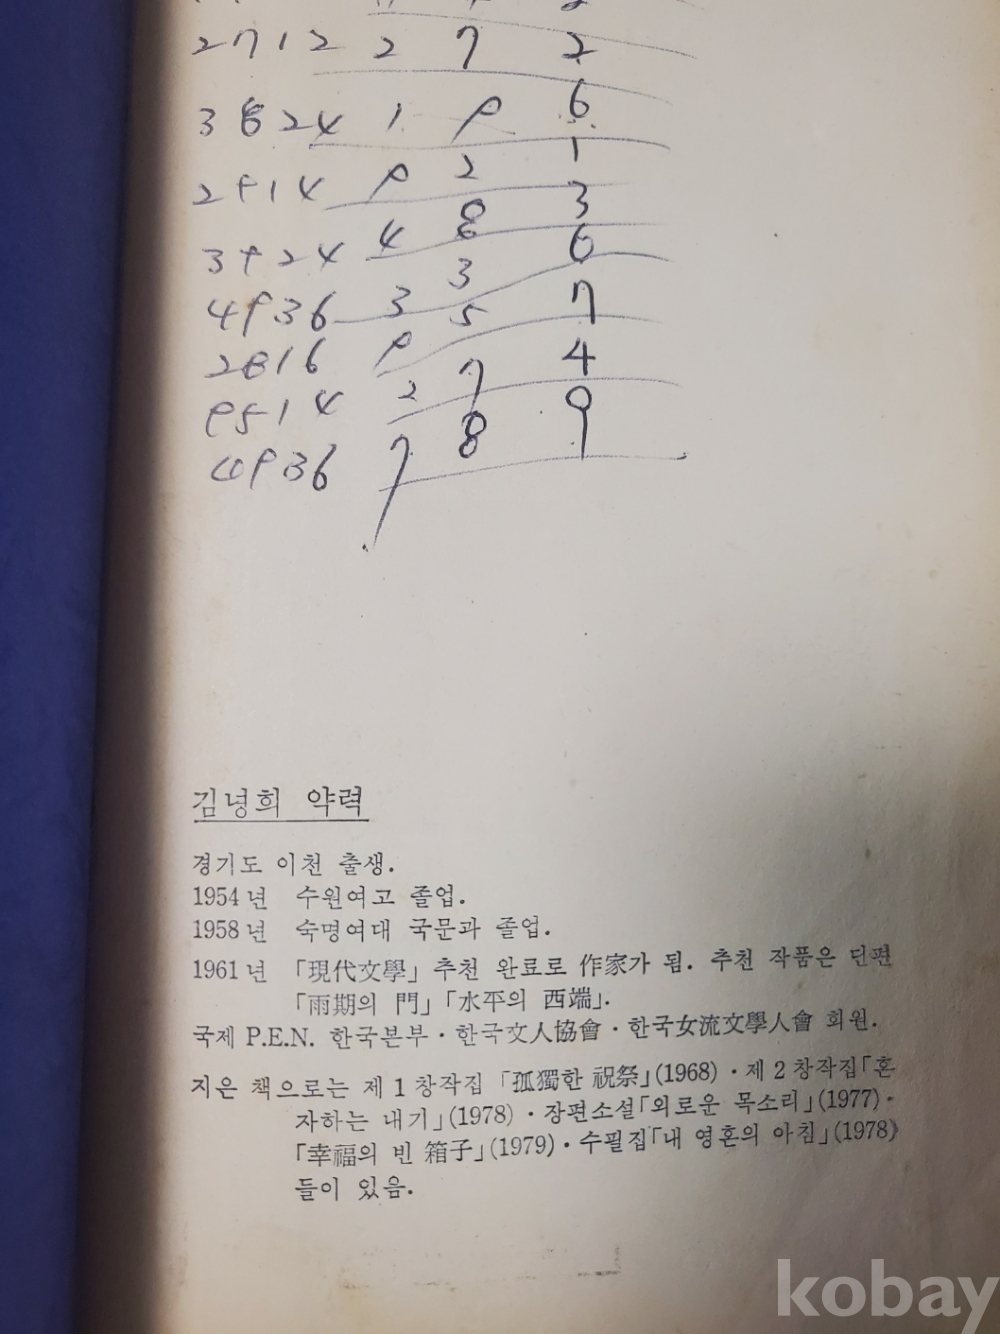 2712 2 7 2
3824 1 9 6
2914 9 2 1
3924 4 8 3
4936 3 3 6
2816 9 5 7
9514 2 7 4
4936 7 8 9
김녕희 약력
경기도 이천 출생.
1954년 수원여고 졸업.
1958년 숙명여대 국문과 졸업.
1961년 「現代文學」 추천 완료로 作家가 됨. 추천 작품은 단편
「雨期의 門」「水平의 西端」.
국제 P.E.N. 한국본부·한국文人協會·한국女流文學人會 회원.
지은 책으로는 제 1 창작집 「孤獨한 祝祭」(1968)·제 2 창작집「혼
자하는 내기」(1978)·장편소설「외로운 목소리」(1977)·
「幸福의 빈 箱子」(1979)·수필집「내 영혼의 아침」(1978)
들이 있음.
kobay